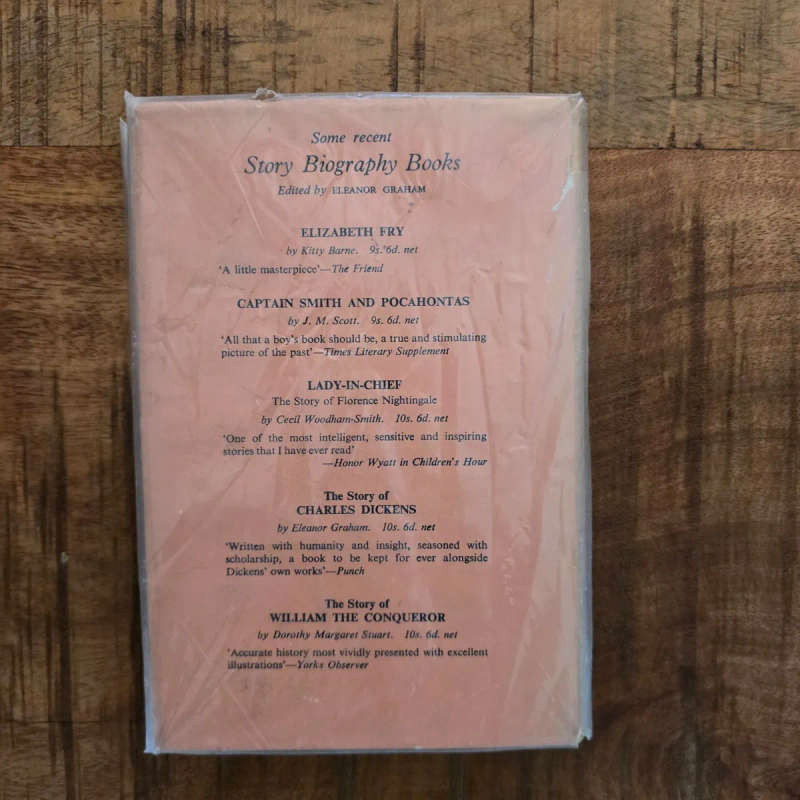 Some recent
Story Biography Books
Edited by ELEANOR GRAHAM
ELIZABETH FRY
by Kitty Barne. 9s. 6d. net
'A little masterpiece'—The Friend
CAPTAIN SMITH AND POCAHONTAS
by J. M. Scott. 9s. 6d. net
'All that a boy's book should be, a true and stimulating
picture of the past'—Times Literary Supplement
LADY-IN-CHIEF
The Story of Florence Nightingale
by Cecil Woodham-Smith. 10s. 6d. net
'One of the most intelligent, sensitive and inspiring
stories that I have ever read'
—Honor Wyatt in Children's Hour
The Story of
CHARLES DICKENS
by Eleanor Graham. 10s. 6d. net
'Written with humanity and insight, seasoned with
scholarship, a book to be kept for ever alongside
Dickens' own works'—Punch
The Story of
WILLIAM THE CONQUEROR
by Dorothy Margaret Stuart. 10s. 6d. net
'Accurate history most vividly presented with excellent
illustrations'—Yorks Observer